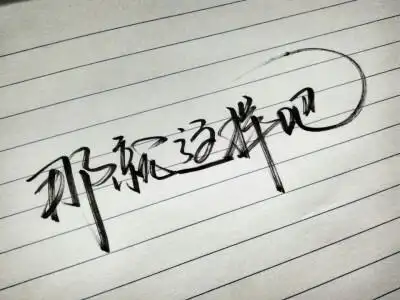 那就这样吧